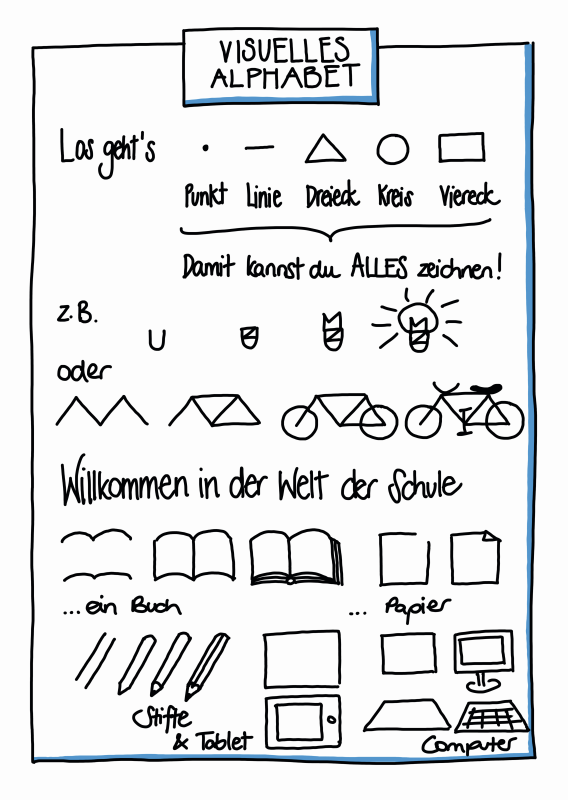 VISUELLES
ALPHABET
Los geht's
Punkt Linie Dreieck Kreis Viereck
Damit kannst du ALLES zeichnen!
z.B.
oder
Willkommen in der Welt der Schule
...ein Buch ... Papier
Stifte
& Tablet
Computer